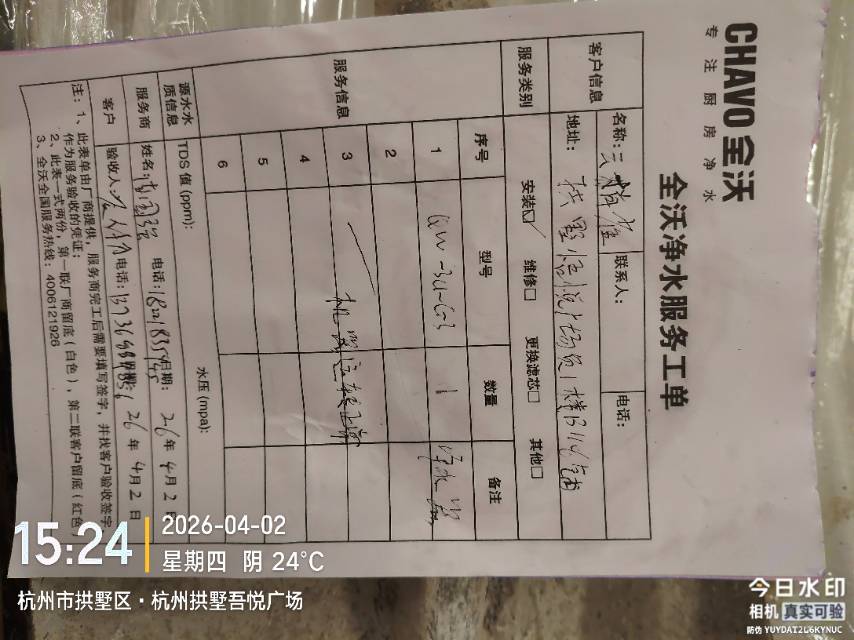 CHAVO 全沃
专注厨房净水
全沃净水服务工单
客户信息
名称:
联系人:
电话:
地址:
服务类别
安装☑
维修□
更换滤芯□
其他□
服务信息
序号
型号
数量
备注
1
1
净水器
2
3
机器运转正常
4
5
6
源水水质信息
TDS值(ppm):
水压(mpa):
服务商
姓名:
电话:
日期: 26年4月2日
客户
验收人:
电话:
日期: 26年4月2日
注:1、此表单由厂商提供,服务商完工后需要填写签字,并找客户验收签字,
作为服务验收的凭证;
2、此表一式两份,第一联厂商留底(白色),第二联客户留底(红色)
3、全沃全国服务热线:4006121926
15:24
2026-04-02
星期四 阴 24°C
杭州市拱墅区·杭州拱墅吾悦广场
今日水印
相机 真实可验
防伪 YUYDAT2L6KYNUC